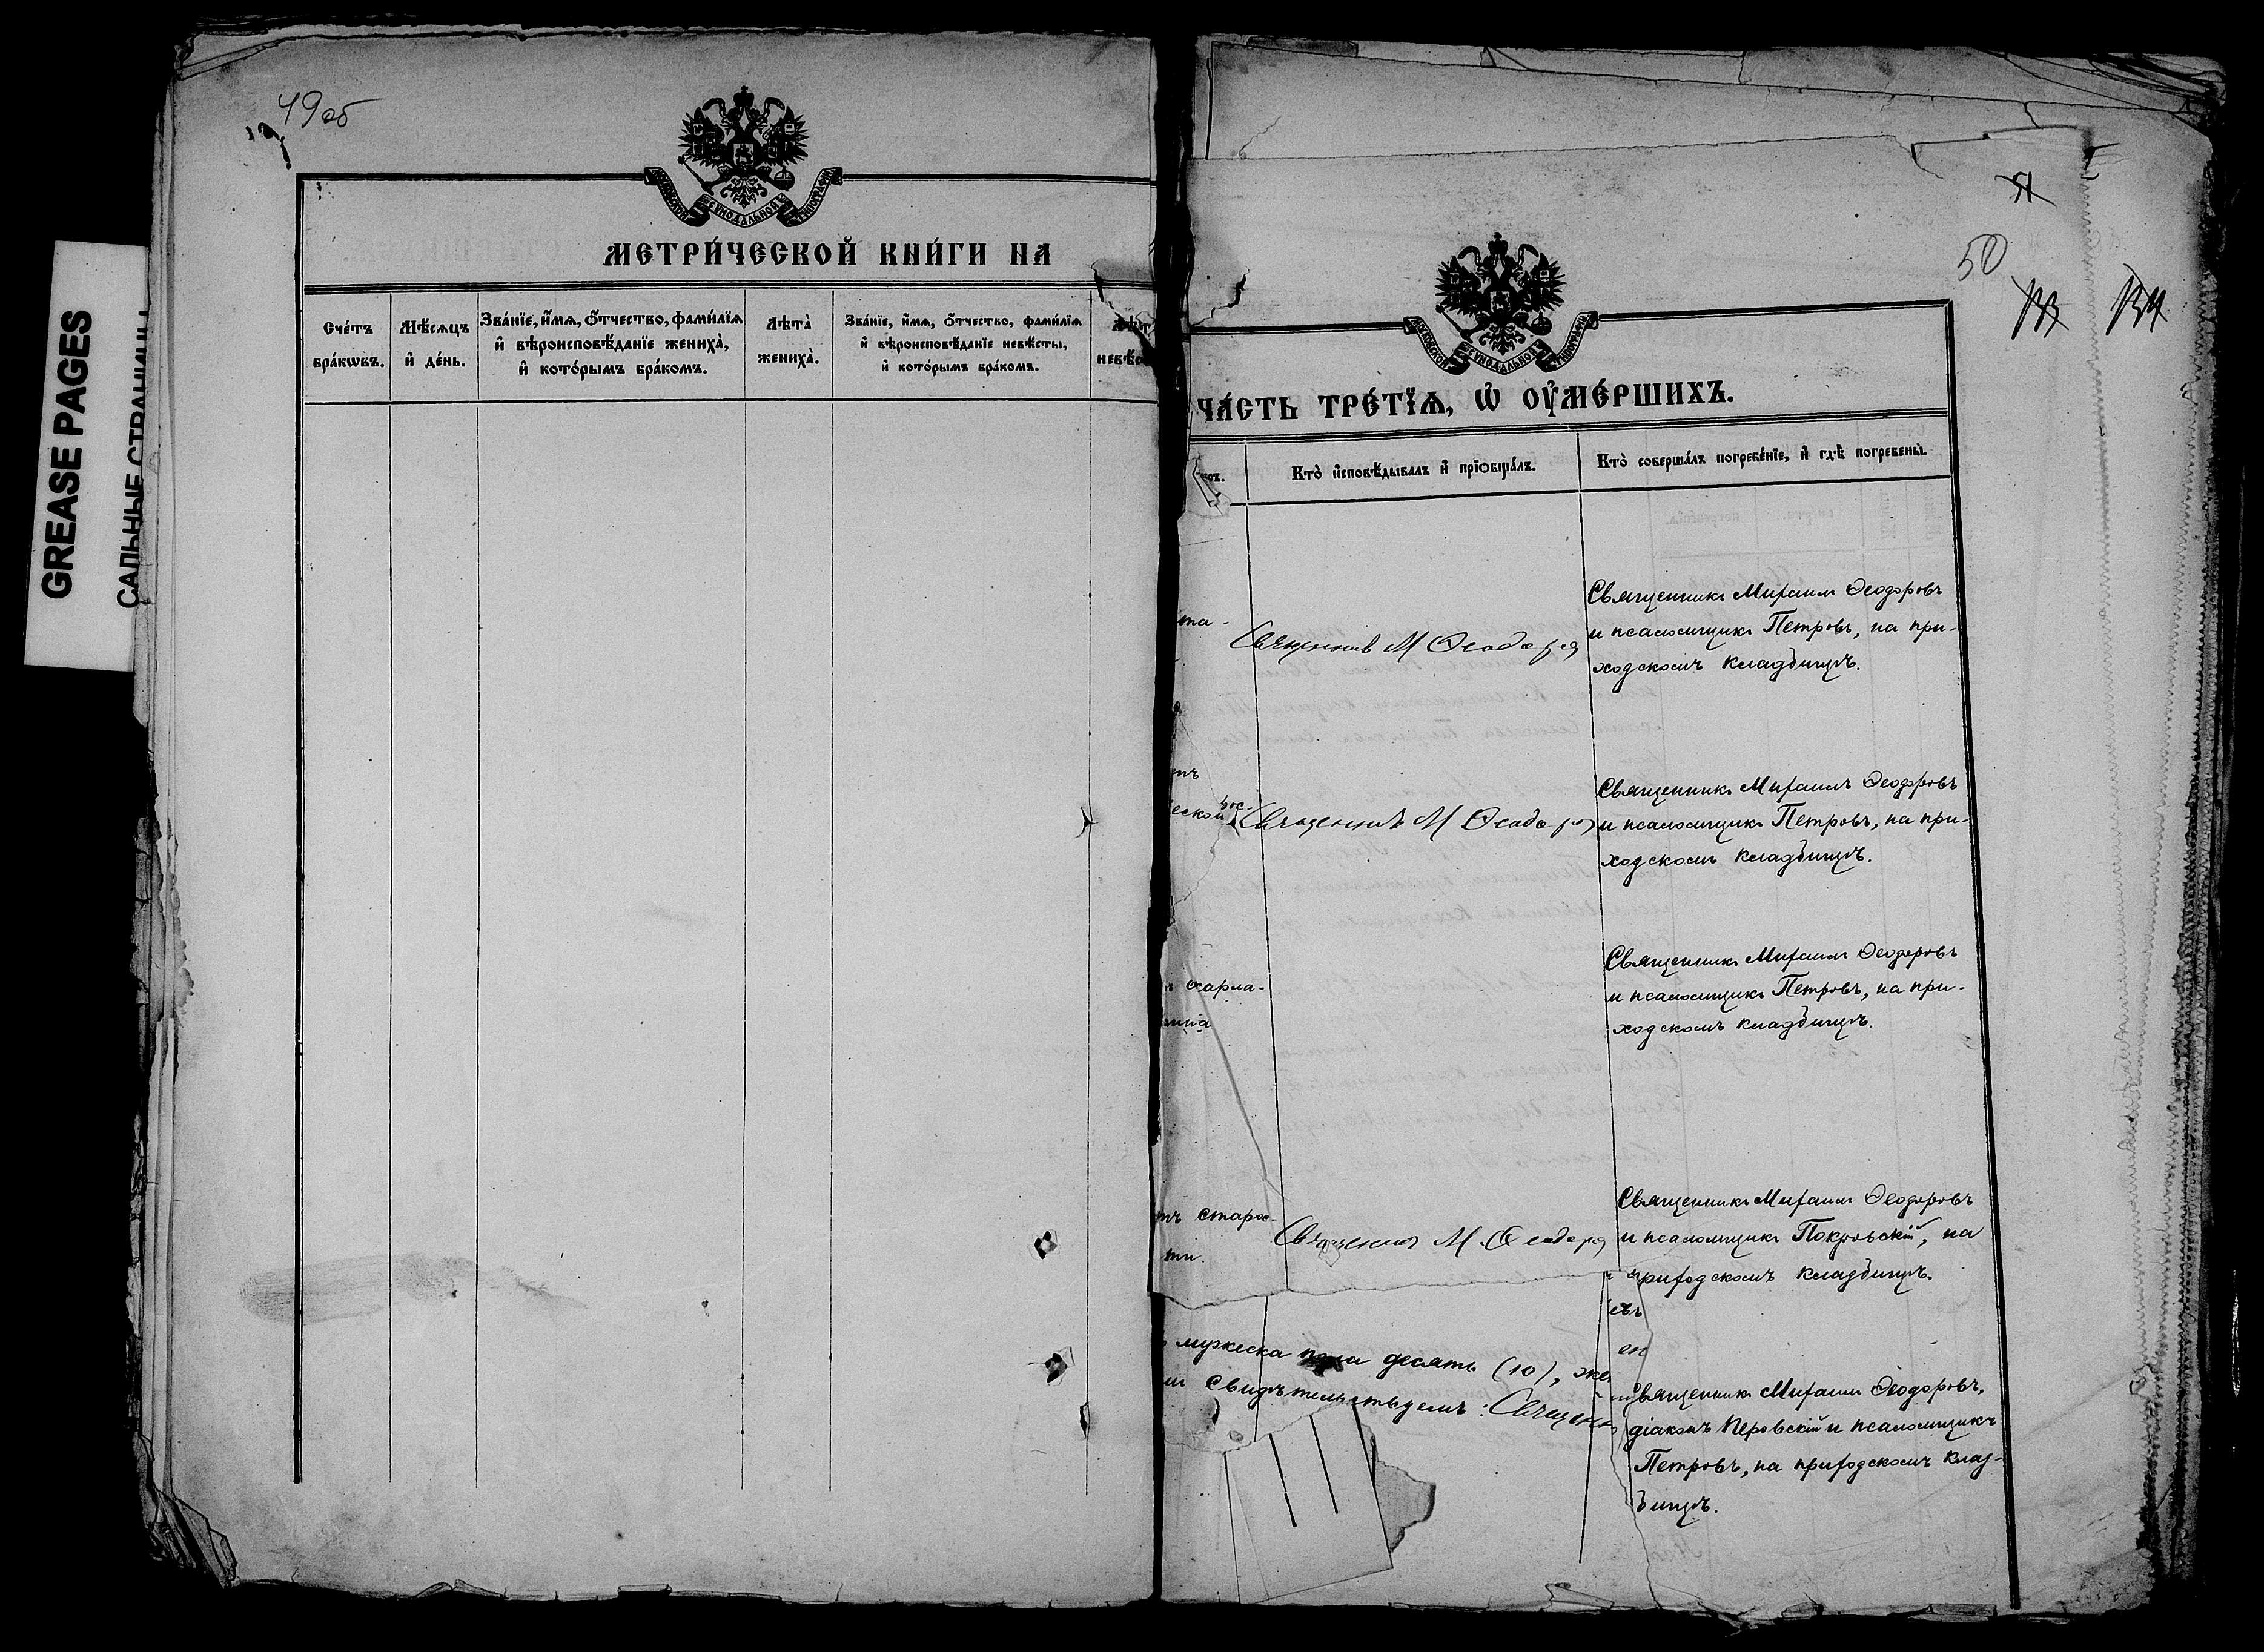 GREASE PAGES
САЛЬНЫЕ СТРАНИЦЫ
49 об
МОСКОВСКОЙ СѴНОДАЛЬНОЙ ТИПОГРАФІИ
МЕТРИ́ЧЕСКОЙ КНИ́ГИ НА
Сче́тъ бра́кѡвъ.
Мѣ́сѧцъ и҆ де́нь.
Зва́нїе, и҆́мѧ, ѻ҆́тчество, фами́лїѧ
и҆ вѣроисповѣ́данїе жениха̀,
и҆ кото́рымъ бра́комъ.
Лѣта̀ жениха̀.
Зва́нїе, и҆́мѧ, ѻ҆́тчество, фами́лїѧ
и҆ вѣроисповѣ́данїе невѣ́сты,
и҆ кото́рымъ бра́комъ.
Лѣт
невѣ́с
51
50
133 134
МОСКОВСКОЙ СѴНОДАЛЬНОЙ ТИПОГРАФІИ
ЧА́СТЬ ТРЕ́ТЇѦ, Ѡ҆ ОУ҆МЕ́РШИХЪ.
Кто̀ и҆сповѣ́дывалъ и҆ прїѻбща́лъ.
Кто̀ соверша́лъ погребе́нїе, и҆ гдѣ̀ погребены̀.
та-
Священникъ М Ѳеодоровъ
Священникъ Михаилъ Ѳеодоровъ
и псаломщикъ Петровъ, на при-
ходскомъ кладбищѣ.
тъ
еской
Священникъ М Ѳеодоровъ
Священникъ Михаилъ Ѳеодоровъ
и псаломщикъ Петровъ, на при-
ходскомъ кладбищѣ.
скарла-
тина
Священникъ Михаилъ Ѳеодоровъ
и псаломщикъ Петровъ, на при-
ходскомъ кладбищѣ.
тъ старос-
ти.
Священникъ М. Ѳеодоровъ
Священникъ Михаилъ Ѳеодоровъ
и псаломщикъ Покровскій, на
приходскомъ кладбищѣ.
мужеска пола десять (10), же
ен
свидѣтельствуемъ: Священн
Священникъ Михаилъ Ѳеодоровъ,
діаконъ Перовскій и псаломщикъ
Петровъ, на приходскомъ клад-
бищѣ.